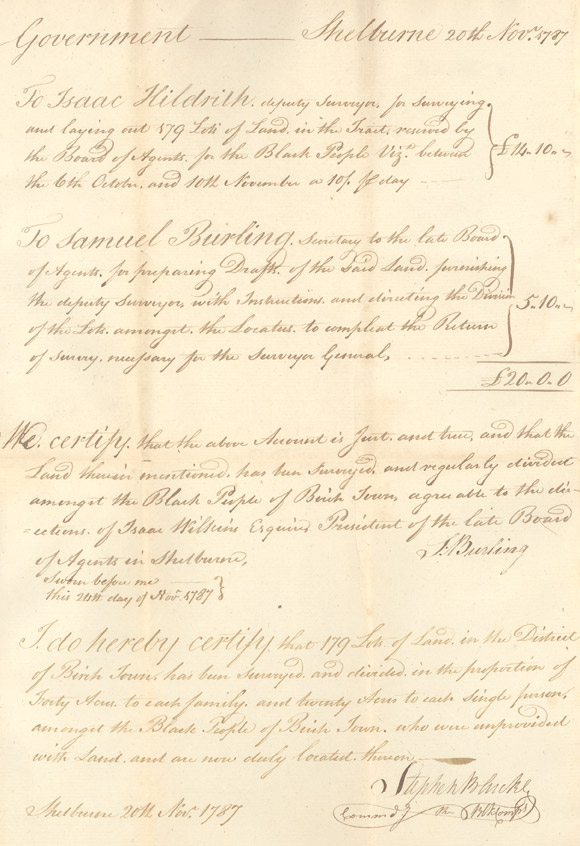 Government — Shelburne 20th Novr. 1787
To Isaac Hildrith, deputy Surveyor, for Surveying
and laying out 179 Lots of Land, in the Tract, reserved by
the Board of Agents, for the Black People Vizt. between
the 6th October, and 10th November a 10/. ⅌ day
£14„10„
To Samuel Burling, Secretary to the late Board
of Agents, for preparing Drafts, of the said Land, furnishing
the deputy Surveyor, with Instructions, and directing the Division
of the Lots, amongst, the Locatees, to compleat the Return
of Survey, necessary for the Surveyor General,
5„10„
£20„0„0
We, certify, that the above Account is Just, and true, and that the
Land therein mentioned, has been Surveyed, and regularly divided
amongst the Black People of Birch Town, agreable to the dir-
=ections, of Isaac Wilkins Esquire President of the late Board
of Agents in Shelburne,
S. Burling
Sworn before me
this 21st day of Novr. 1787
I, do hereby certify that 179 Lots of Land, in the District
of Birch Town, has been Surveyed, and divided, in the proportion of
Forty Acres, to each family, and twenty Acres to each Single person,
amongst the Black People of Birch Town, who were unprovided
with Land, and are now duly located thereon
Stephen Blucke
Commdg the Blk
Shelburne 20th Novr. 1787